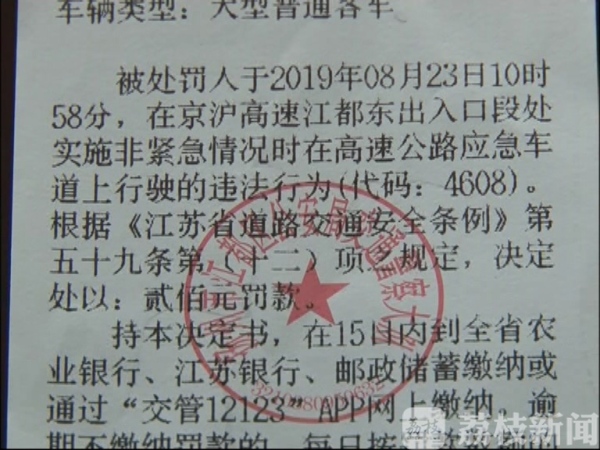 车辆类型：大型普通客车
被处罚人于2019年08月23日10时
58分，在京沪高速江都东出入口段处
实施非紧急情况时在高速公路应急车
道上行驶的违法行为(代码：4608)。
根据《江苏省道路交通安全条例》第
五十九条第（十二）项之规定，决定
处以：贰佰元罚款。
持本决定书，在15日内到全省农
业银行、江苏银行、邮政储蓄缴纳或
通过“交管12123”APP网上缴纳，逾
期不缴纳罚款的，每日按
荔枝新闻